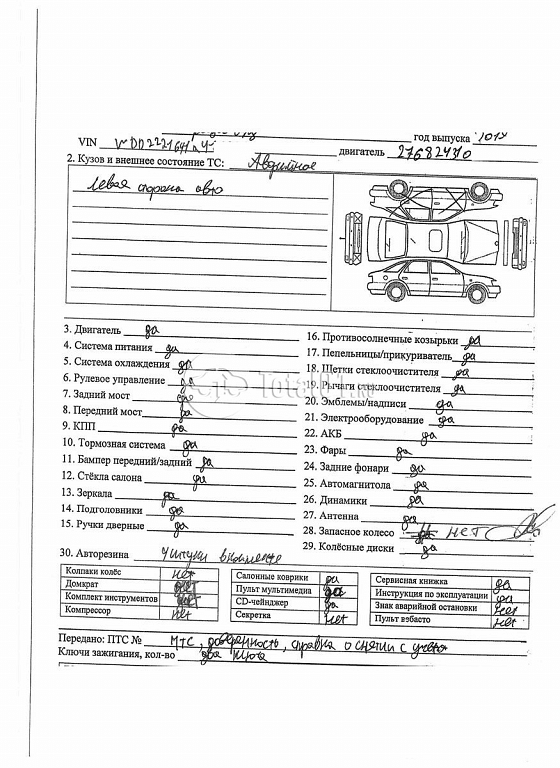 VIN год выпуска
двигатель 27682430
2. Кузов и внешнее состояние ТС: Аварийное
Левая сторона авто
3. Двигатель да
4. Система питания да
5. Система охлаждения да
6. Рулевое управление да
7. Задний мост
8. Передний мост да
9. КПП да
10. Тормозная система да
11. Бампер передний/задний да
12. Стёкла салона да
13. Зеркала да
14. Подголовники да
15. Ручки дверные да
16. Противосолнечные козырьки да
17. Пепельницы/прикуриватель да
18. Щетки стеклоочистителя да
19. Рычаги стеклоочистителя да
20. Эмблемы/надписи да
21. Электрооборудование да
22. АКБ да
23. Фары да
24. Задние фонари да
25. Автомагнитола да
26. Динамики да
27. Антенна да
28. Запасное колесо нет
29. Колёсные диски да
Total01.ru
30. Авторезина 4 штуки в комплекте
Колпаки колёс нет
Домкрат нет
Комплект инструментов нет
Компрессор нет
Салонные коврики да
Пульт мультимедиа да
CD-чейнджер да
Секретка нет
Сервисная книжка да
Инструкция по эксплуатации да
Знак аварийной остановки нет
Пульт вэбасто нет
Передано: ПТС № МТС, доверенность, справка о снятии с учета
Ключи зажигания, кол-во два ключа